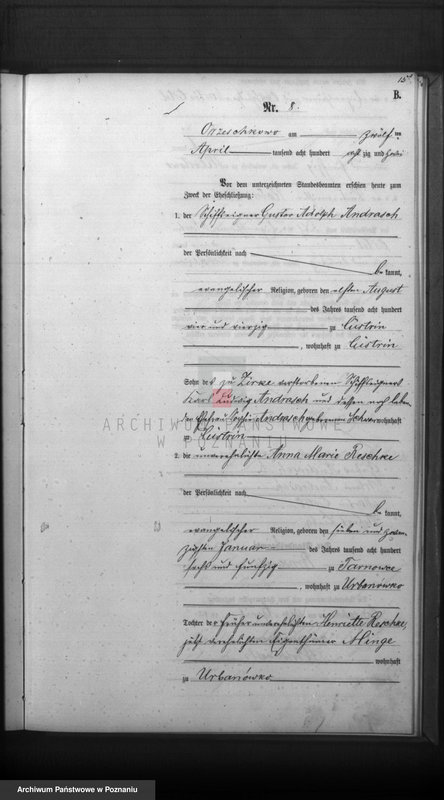 15.
B.
Nr. 8.
Orzeschkowo am zwölften
April tausend acht hundert acht zig und zwei
Vor dem unterzeichneten Standesbeamten erschien heute zum
Zweck der Eheschließung:
1. der Schiffseigner Gustav Adolph Andrasch
der Persönlichkeit nach
be kannt,
evangelischer Religion, geboren den elften August
des Jahres tausend acht hundert
vier und vierzig zu Cüstrin
, wohnhaft zu Cüstrin
Sohn des zu Zirke verstorbenen Schiffseigners
Karl Ludwig Andrasch und dessen noch leben
Andrasch geborenen wohnhaft
zu Küstrin
2. die unverehelichte Anna Marie Reschke
der Persönlichkeit nach
be kannt,
evangelischer Religion, geboren den sieben und zwan
zigsten Januar des Jahres tausend acht hundert
sechs und fünfzig zu Tarnowce
, wohnhaft zu Urbanówko
Tochter der früher unverehelichten Henriette Reschke,
jetzt verehelichten Eigenthümer Minge
wohnhaft
zu Urbanówko
ARCHIWUM PAŃSTWOWE
W POZNANIU
Archiwum Państwowe w Poznaniu